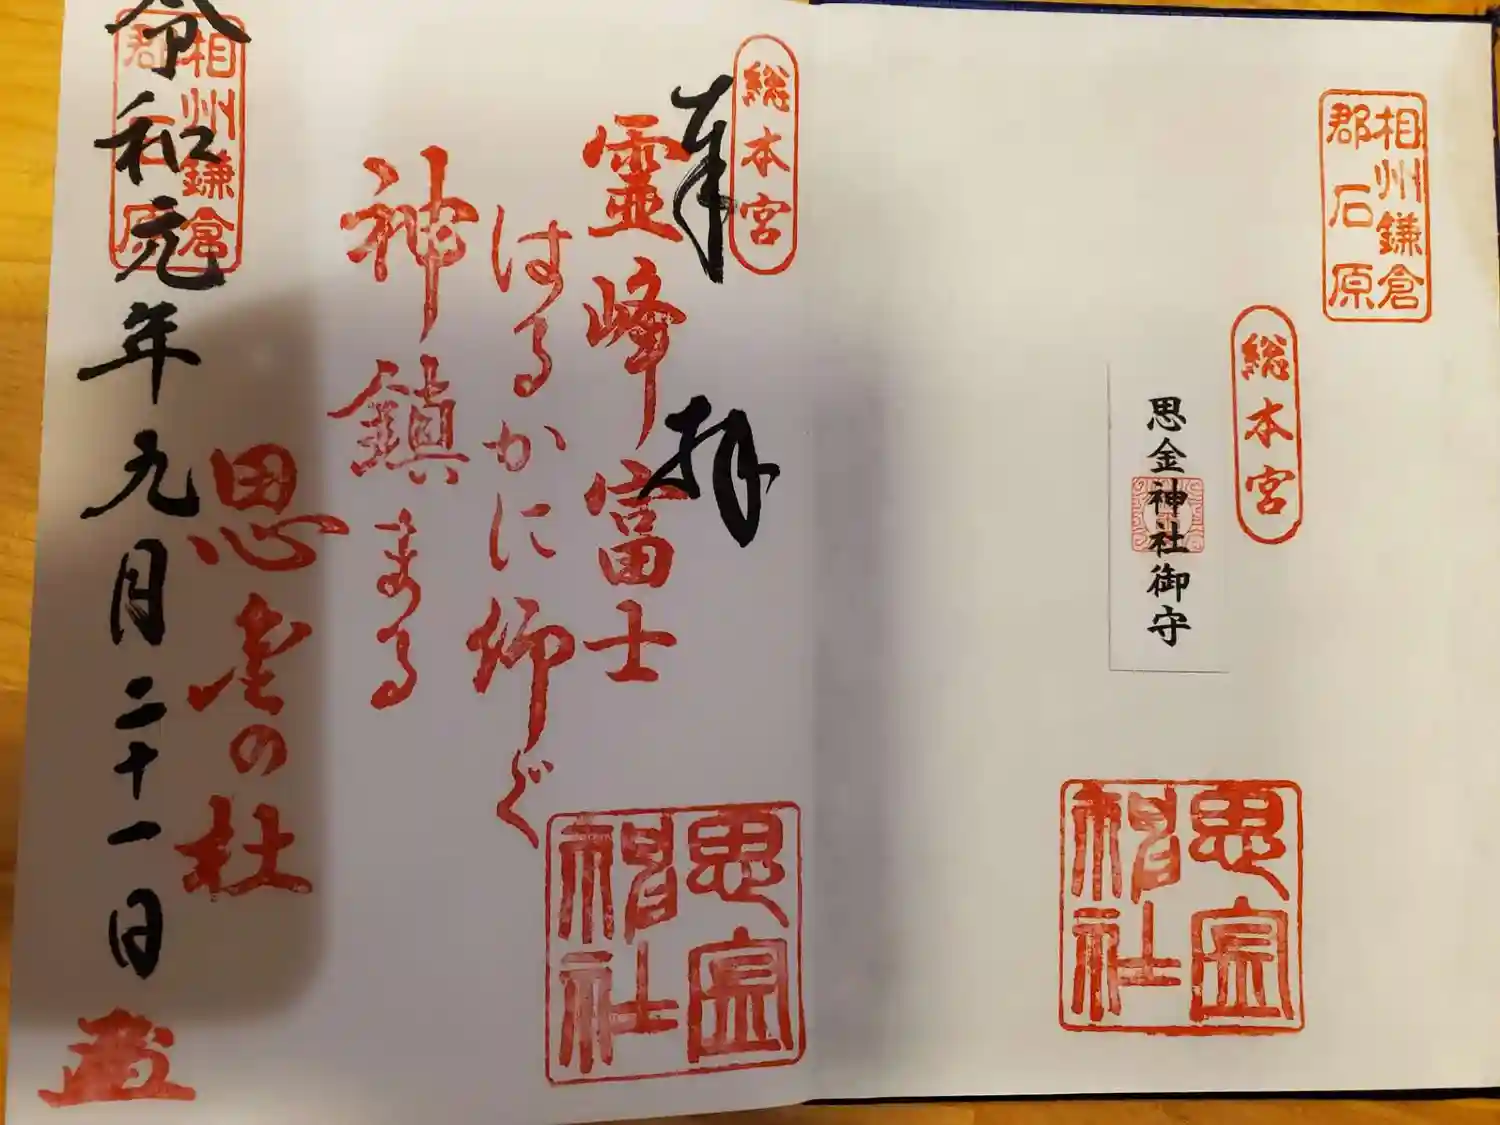 相州鎌倉
郡石原
総本宮
思金神社御守
思金
神社
総本宮
奉拝
靈峰富士
はるかに仰ぐ
神鎮まる
思金の杜
相州鎌倉
郡石原
令和元年九月二十一日
思金
神社